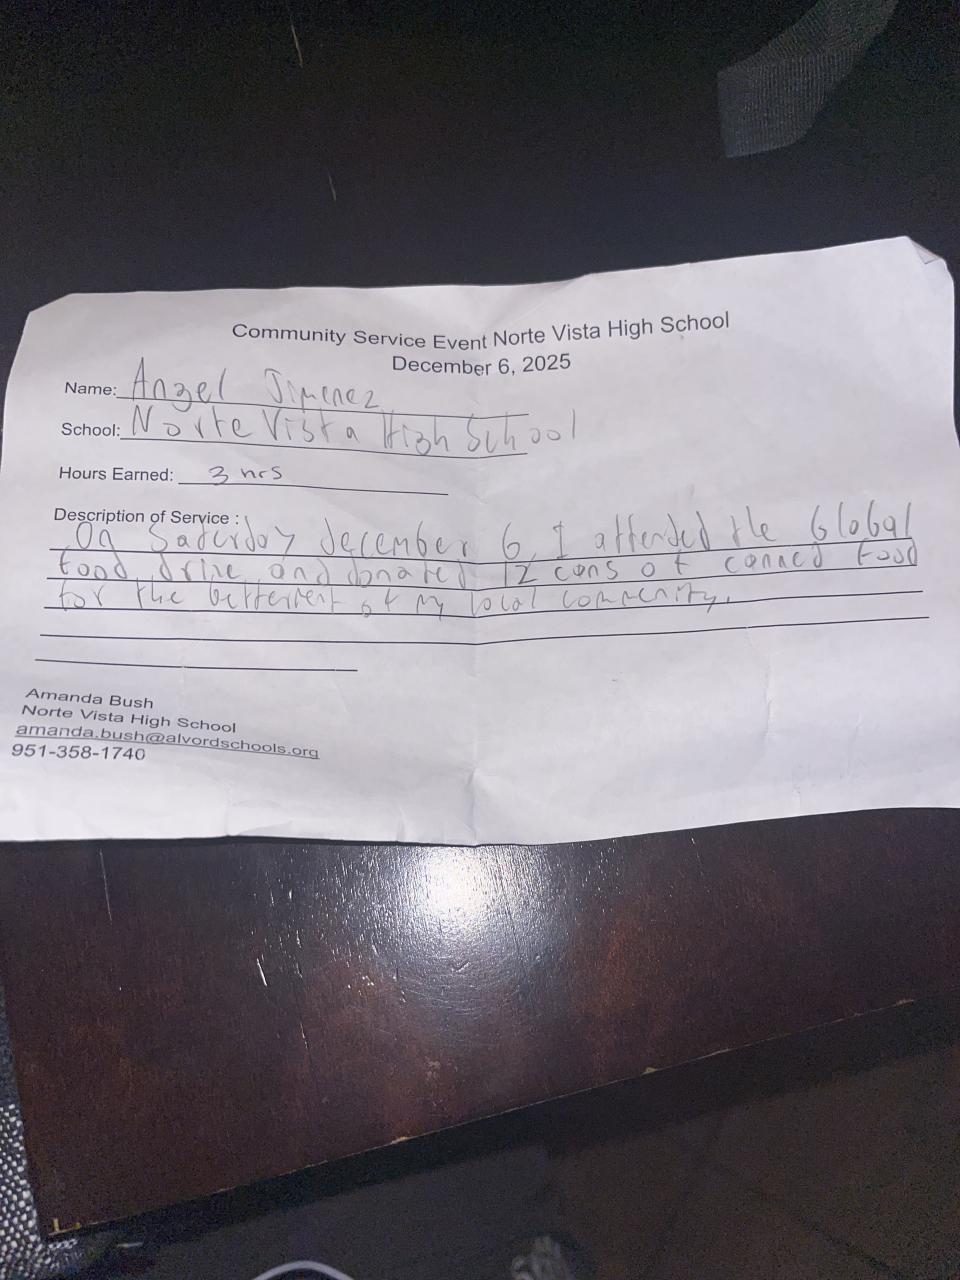 Community Service Event Norte Vista High School
December 6, 2025
Name: Angel Jimenez
School: Norte Vista High School
Hours Earned: 3 hrs
Description of Service :
On Saturday december 6, I attended the Global
food drive and donated 12 cans of canned food
for the betterment of my local community.
Amanda Bush
Norte Vista High School
amanda.bush@alvordschools.org
951-358-1740